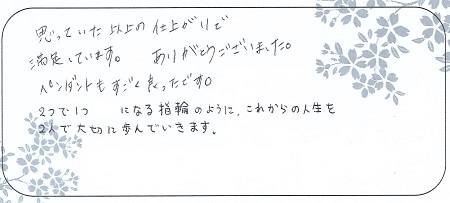 思っていた以上の仕上がりで
満足しています。 ありがとうございました。
ペンダントもすごく良ったです。
2つで1つ になる指輪のように、これからの人生を
2人で大切に歩んでいきます。